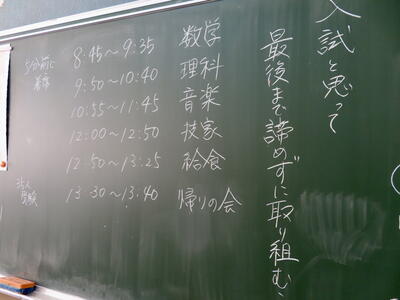 入試と思って
最後まで諦めずに取り組む、
8:45〜9:35 数学
5分前に
着席
9:50〜10:40 理科
10:55〜11:45 音楽
12:00〜12:50 技家
12:50〜13:25 給食
13:30〜13:40 帰りの会
受験